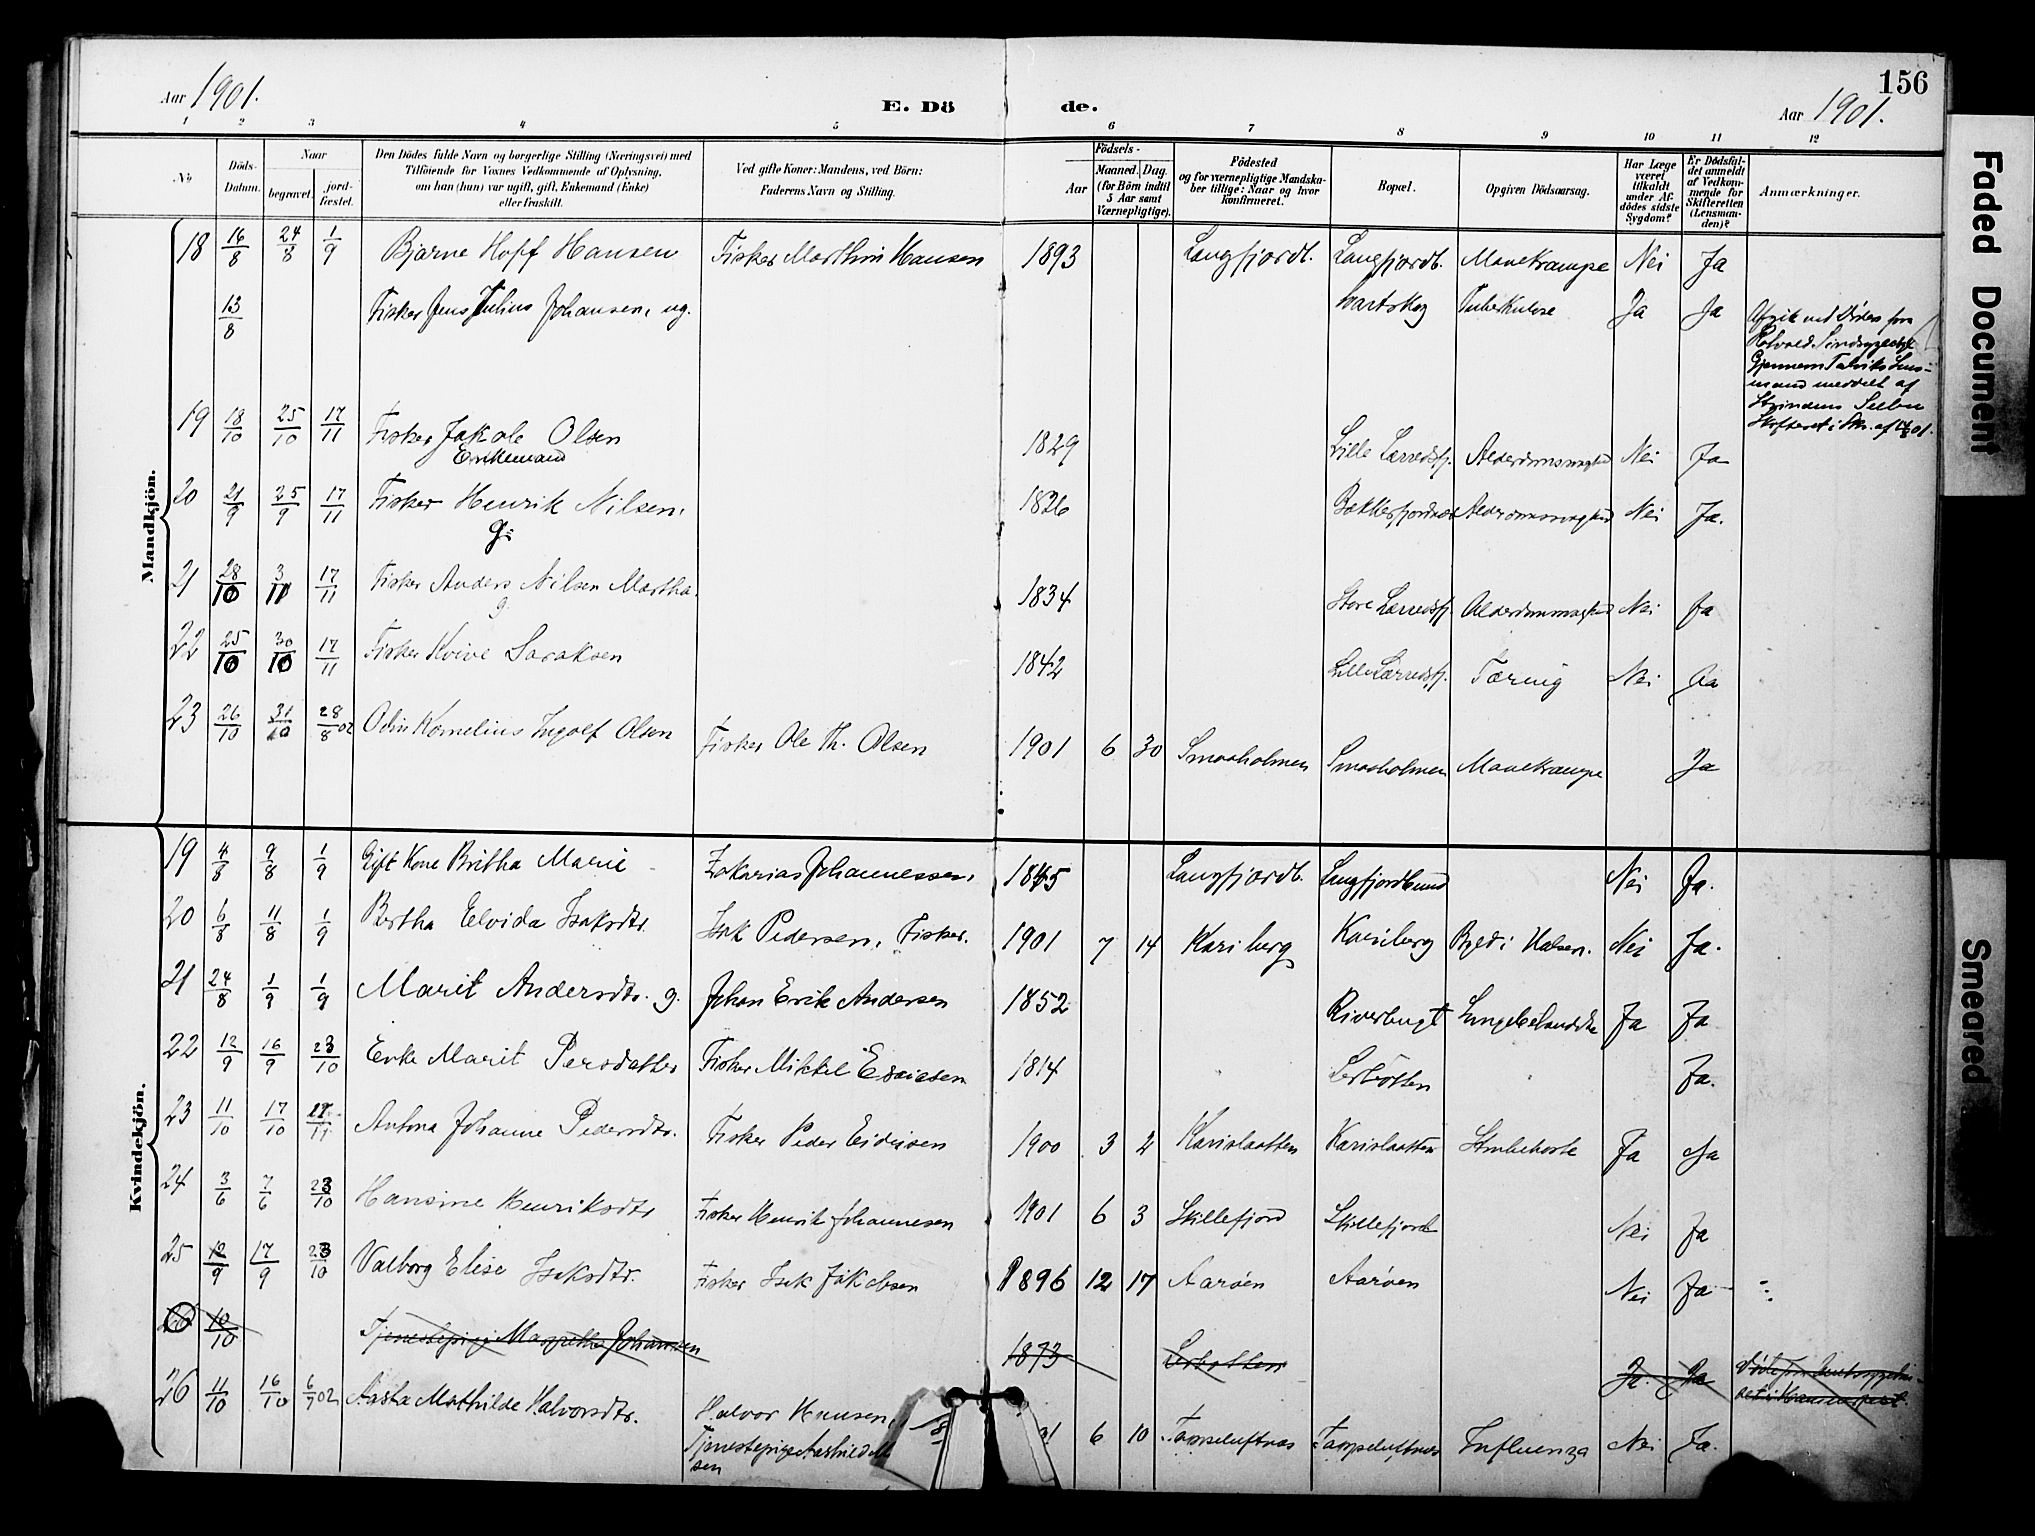 156
Aar 1901. E. Dö de. Aar 1901.
1 2 3 4 5 6 7 8 9 10 11 12
No Döds-Datum. Naar begravet. jordfæstet. Den Dödes fulde Navn og borgerlige Stilling (Næringsvei) med Tilföiende for Voxnes Vedkommende af Oplysning, om han (hun) var ugift, gift, Enkemand (Enke) eller fraskilt. Ved gifte Koner: Mandens, ved Börn: Faderens Navn og Stilling. Födsels- Aar Maaned. Dag. (for Börn indtil 5 Aar samt Værnepligtige). Födested og for værnepligtige Mandskaber tillige: Naar og hvor konfirmeret. Bopæl. Opgiven Dödsaarsag. Har Læge været tilkaldt under Afdödes sidste Sygdom? Er Dödsfaldet anmeldt af Vedkommende for Skifteretten (Lensmanden)? Anmærkninger.
Mandkjön.
18 16/8 24/8 1/9 Bjarne Hopf Hansen Fisker Marthin Hansen 1893 Langfjordb. Langfjordb. Mavekrampe Nei Ja
13/8 Fisker Jens Julius Johansen, ug. Tuberkulose Ja Ja
19 18/10 25/10 17/11 Fisker Jakole Olsen Enkemand 1829 Lille Lerredsfj. Alderdomssvaghed Nei Ja
20 21/9 25/9 17/11 Fisker Henrik Nilsen, g: 1826 Alderdomssvaghed Nei Ja.
21 28/10 3/11 17/11 Fisker Anders Nilsen Martha. g. 1834 Store Lerredsfj. Alderdomssvaghed Nei Ja
22 25/10 30/10 17/11 Fisker Kvive Saraksen 1842 Lille Lerredsfj. Tæring Nei Ja
23 26/10 31/10 28/8 02 Odin Kornelius Ingolf Olsen Fisker Ole Th. Olsen 1901 6 30 Smaaholmen Smaaholmen Mavekrampe Ja
Kvindekjön.
19 4/8 9/8 1/9 Gift Kone Britha Marie Zakarias Johannessen, 1845 Langfjordb. Langfjordbund Nei Ja.
20 6/8 11/8 1/9 Bertha Elvida Isaksdtr. Isak Pedersen, Fisker. 1901 7 14 Kariberg Kariberg Byld i Halsen. Nei Ja.
21 24/8 1/9 1/9 Marit Andersdtr. g. Johan Erik Andersen 1852 Riverbugt Ja Ja
22 12/9 16/9 23/10 Enke Marit Persdatter Fisker Mikkel Esaiasen 1814 Lerbotten Ja.
23 11/10 17/10 17/11 Antona Johanne Pedersdtr. Fisker Peder 1900 3 2 Karislaatten Karislaatten Strubehoste Ja Ja
24 3/6 7/6 23/10 Hansine Henriksdtr Fisker Henrik Johannesen 1901 6 3 Skillefjord Skillefjord Nei Ja
25 12/9 17/9 23/10 Valborg Elise Isaksdtr. Fisker Isak Jakobsen 1896 12 17 Aarøen Aarøen Nei Ja
26 10/10 Tjenestepige Margrethe Johansen 1873 Lerbotten Ja. Ja
26 11/10 16/10 6/7 02 Aasta Mathilde Halvorsdtr. Halvor Hansen, 6 10 Tappeluftnæs Tappeluftnæs Influenza Nei Ja.
Tjenestepige
sen
Faded Document
Smeared